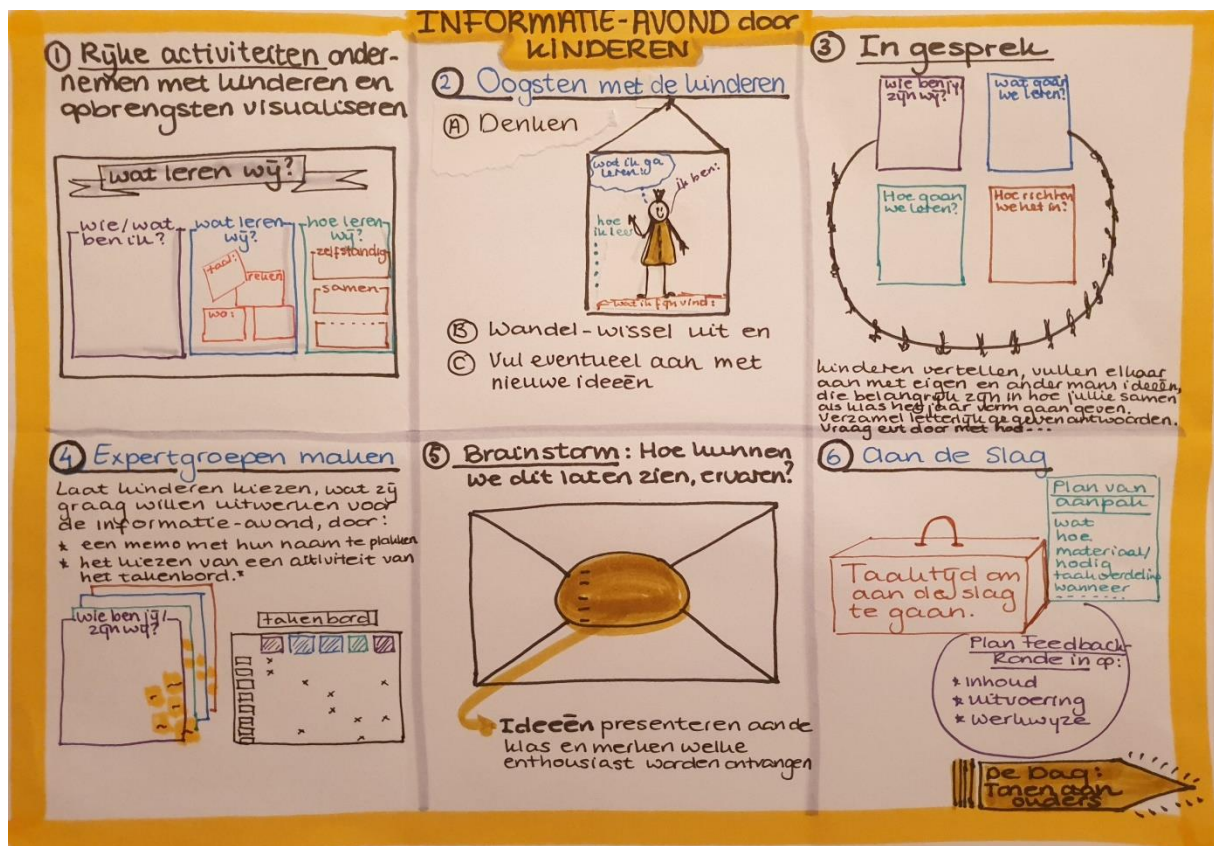 INFORMATIE-AVOND door
KINDEREN
① Rijke activiteiten onder-
nemen met kinderen en
opbrengsten visualiseren
wat leren wij?
wie/wat
ben ik?
wat leren
wij?
taal:
rekenen
wo:
hoe leren
wij?
zelfstandig
samen
② Oogsten met de kinderen
Ⓐ Denken
wat ik ga
leren:
ik ben:
hoe
ik leer
wat ik fijn vind:
Ⓑ Wandel-wissel uit en
Ⓒ Vul eventueel aan met
nieuwe ideeën
③ In gesprek
wie ben jij,
zijn wij?
wat gaan
we leren?
Hoe gaan
we leren?
Hoe richten
we het in?
kinderen vertellen, vullen elkaar
aan met eigen en andermans ideeën,
die belangrijk zijn in hoe jullie samen
als klas het jaar vorm gaan geven.
Verzamel letterlijk gegeven antwoorden.
Vraag evt door met hoe---
④ Expertgroepen maken
Laat kinderen kiezen, wat zij
graag willen uitwerken voor
de informatie-avond, door:
* een memo met hun naam te plakken
* het kiezen van een aktiviteit van
het takenbord.*
wie ben jij/
zijn wij?
takenbord
⑤ Brainstorm: Hoe kunnen
we dit laten zien, ervaren?
Ideeën presenteren aan de
klas en merken welke
enthousiast worden ontvangen
⑥ aan de slag
Plan van
aanpak
wat
hoe
materiaal/
nodig
taakverdeling
wanneer
Taaktijd om
aan de slag
te gaan.
Plan Feedback-
Ronde in op:
* inhoud
* uitvoering
* werkwijze
De Dag:
Tonen aan
ouders